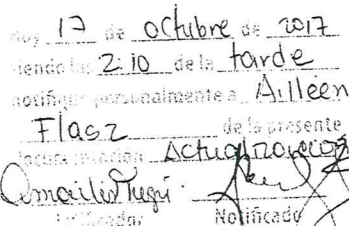 Hoy 17 de Octubre de 2017
siendo las 2:10 de la tarde
notifique personalmente a Ailleen
Flasz de la presente
documentación Actualización
Notificador Notificado